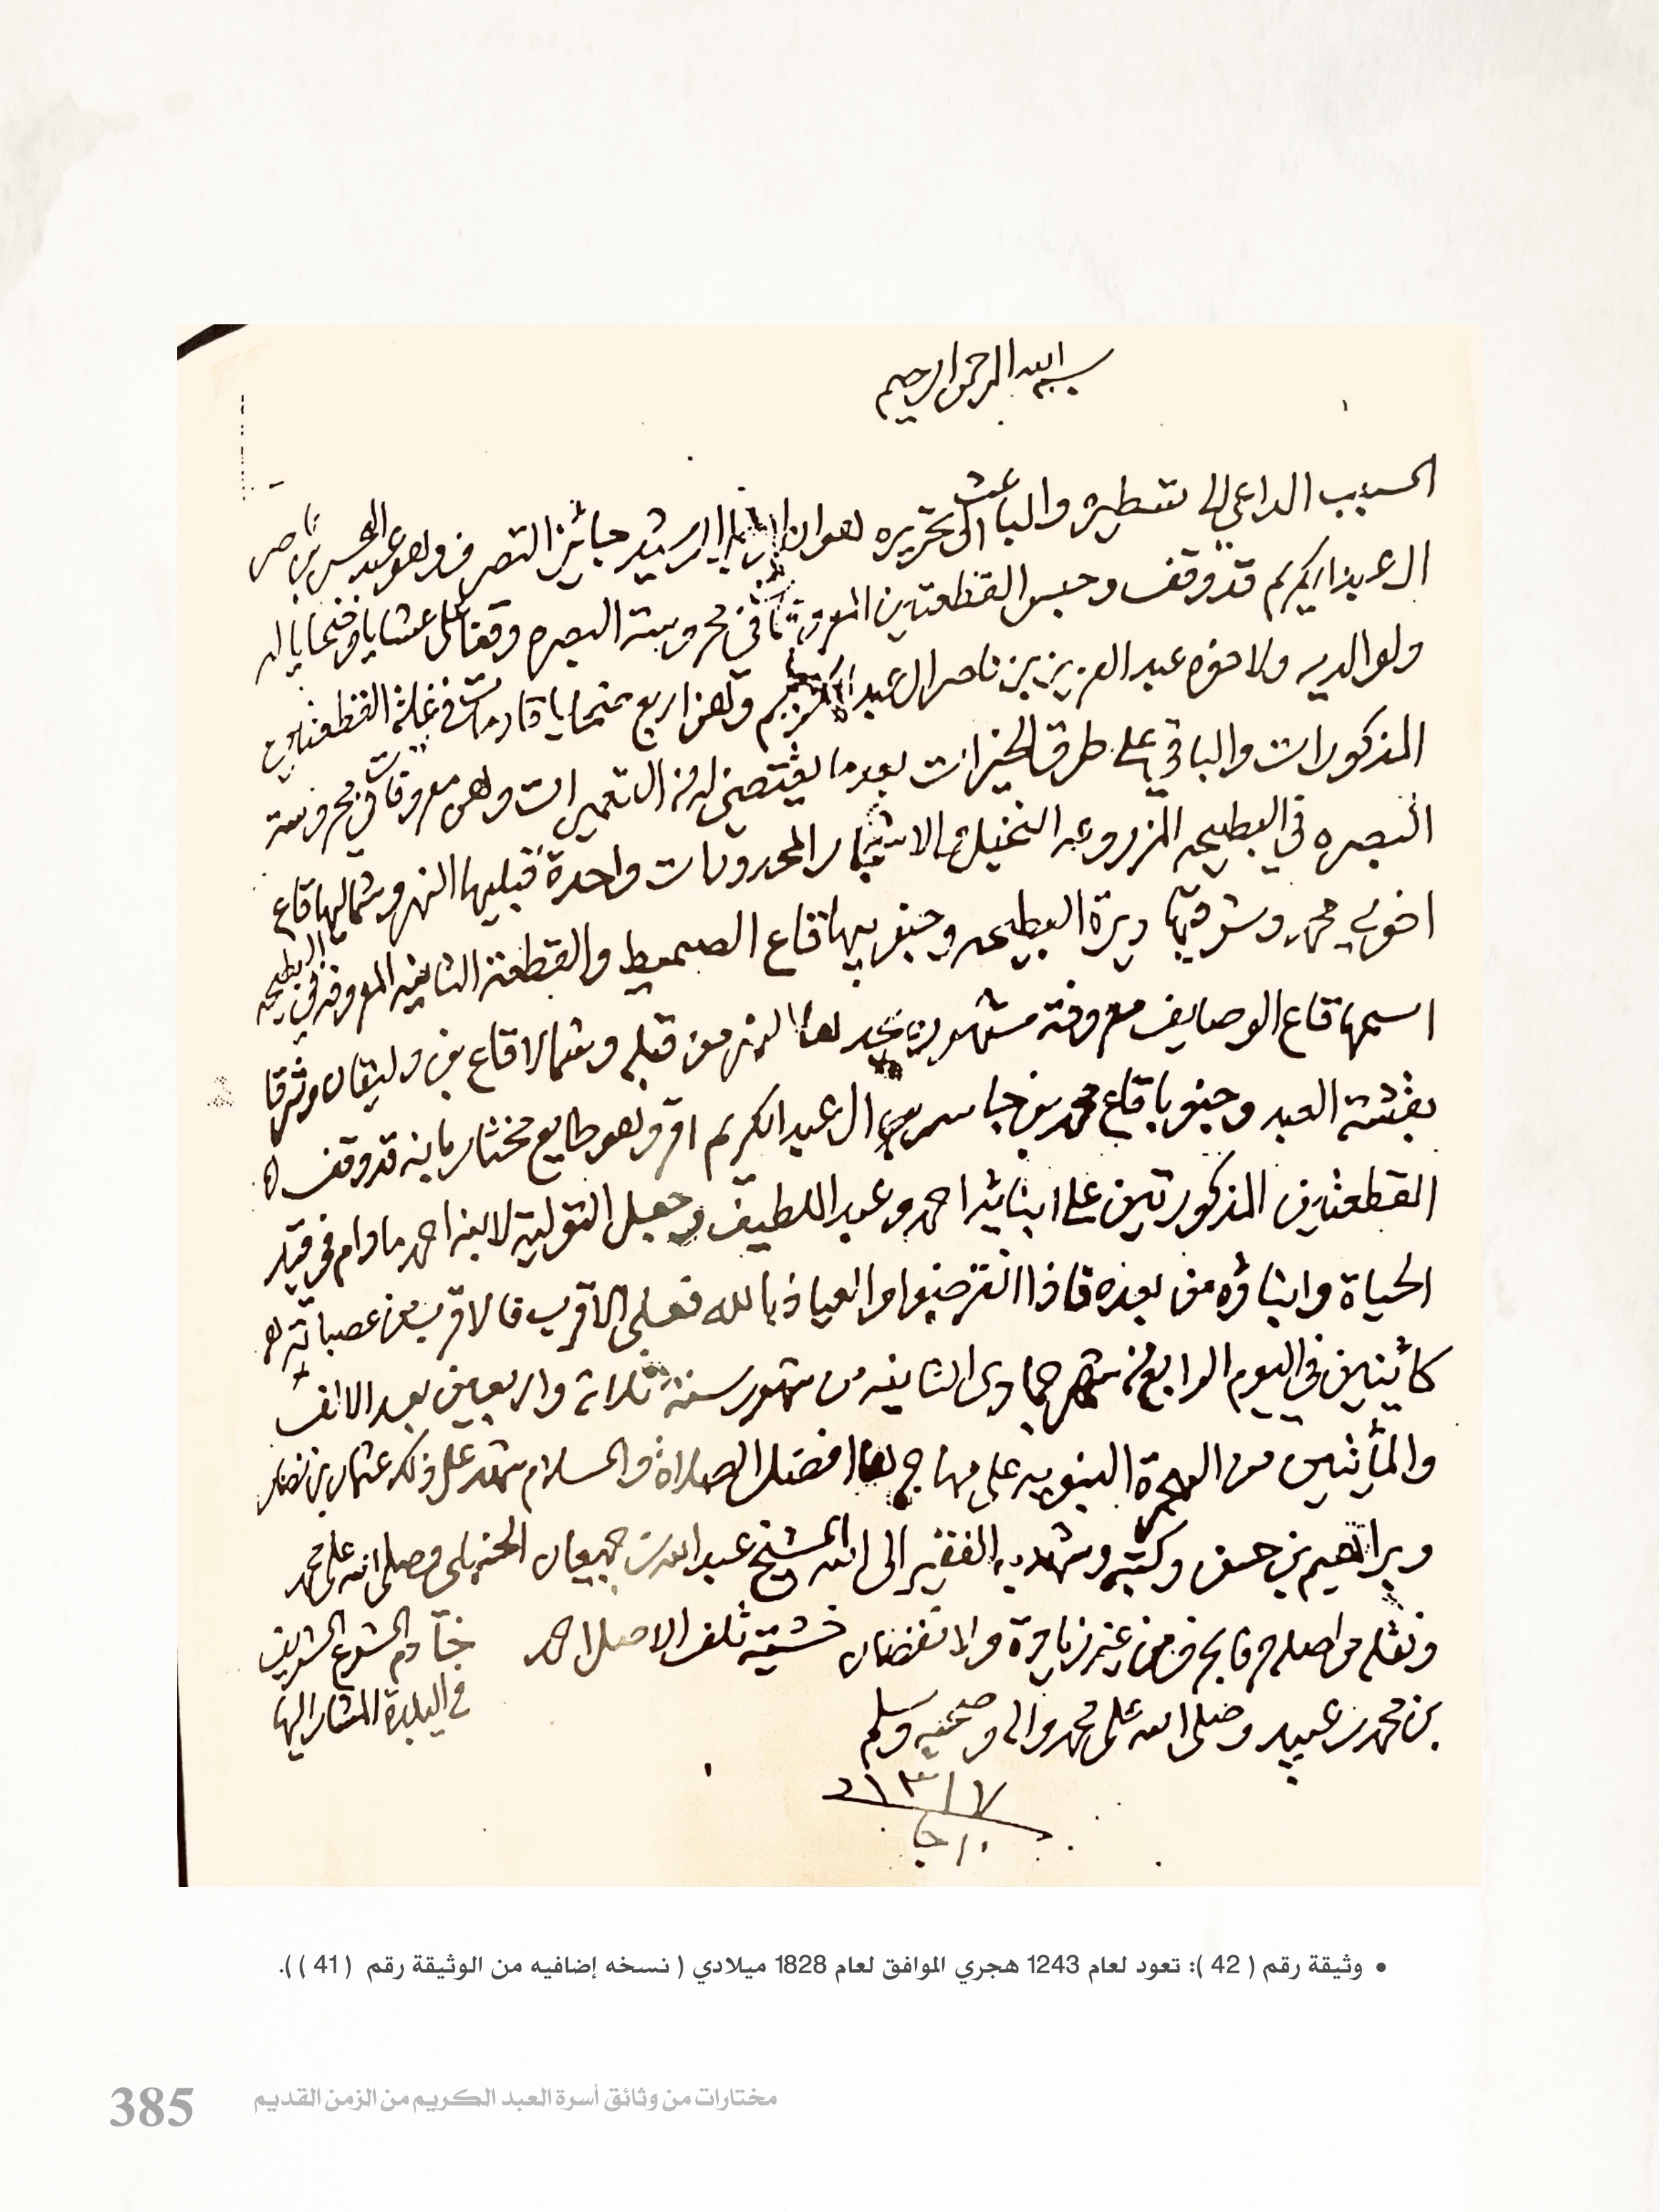 بسم الله الرحمن الرحيم
السبب الداعي الى تسطيره والباعث الى تحريره هو ان الرشيد جائز التصرف وهو عبد المحسن بن ناصر
ال عبدالكريم قد وقف وحبس القطعتين المعروفتا في محروسة البصره وقفا على عشايا وضحايا له
ولوالديه ولاخوه عبد العزيز بن ناصر ال عبدالكريم وهن اربع ضحايا قادمات في غلة القطعتين
المذكورات والباقي على طرق الخيرات بعد ما يقتضي له من التعميرات وهن معروفات في محروسة
البصره في البطيحه المزروعه النخيل والاشجار المحدودات واحدة قبليها النهر وشماليها قاع
اخوي محمد وشرقيها ديرة البطيحه وجنوبيها قاع الصميط والقطعة الثانيه المعروفه في البطيحه
اسمها قاع الوصايف معروفة مشهوره يحدها النهر من قبله وشمالا قاع بن وليتان وشرقا
بقشة العبد وجنوبا قاع محمد بن جاسر ال عبدالكريم اقر وهو طايع مختار بانه قد وقف
القطعتين المذكورتين على ابنائه احمد وعبد اللطيف وجعل التولية لابنه احمد مادام في قيد
الحياة وابناؤه من بعده فاذا انقرضوا والعياذ بالله فعلى الاقرب فالاقرب من عصباته
كائنين في اليوم الرابع من شهر جمادى الثانيه من شهور سنة ثلاثة واربعين بعد الالف
والمأتين من الهجرة النبويه على مهاجرها افضل الصلاة والسلام شهد على ذلك عثمان بن نصار
وبراهيم بن حسن وكتبه وشهد به الفقير الى الله الشيخ عبدالله بن جميعان الحنبلي وصلى الله على محمد
ونقله من اصله حرفا بحرف من غير زيادة ولا نقصان خشية تلف الاصل احمد
خادم الشرع الشريف
بن محمد بن عبيد وصلى الله على محمد واله وصحبه وسلم
في البلدة المشار اليها
• وثيقة رقم ( 42 ): تعود لعام 1243 هجري الموافق لعام 1828 ميلادي ( نسخه إضافيه من الوثيقة رقم ( 41 ) ).
مختارات من وثائق أسرة العبد الكريم من الزمن القديم
385